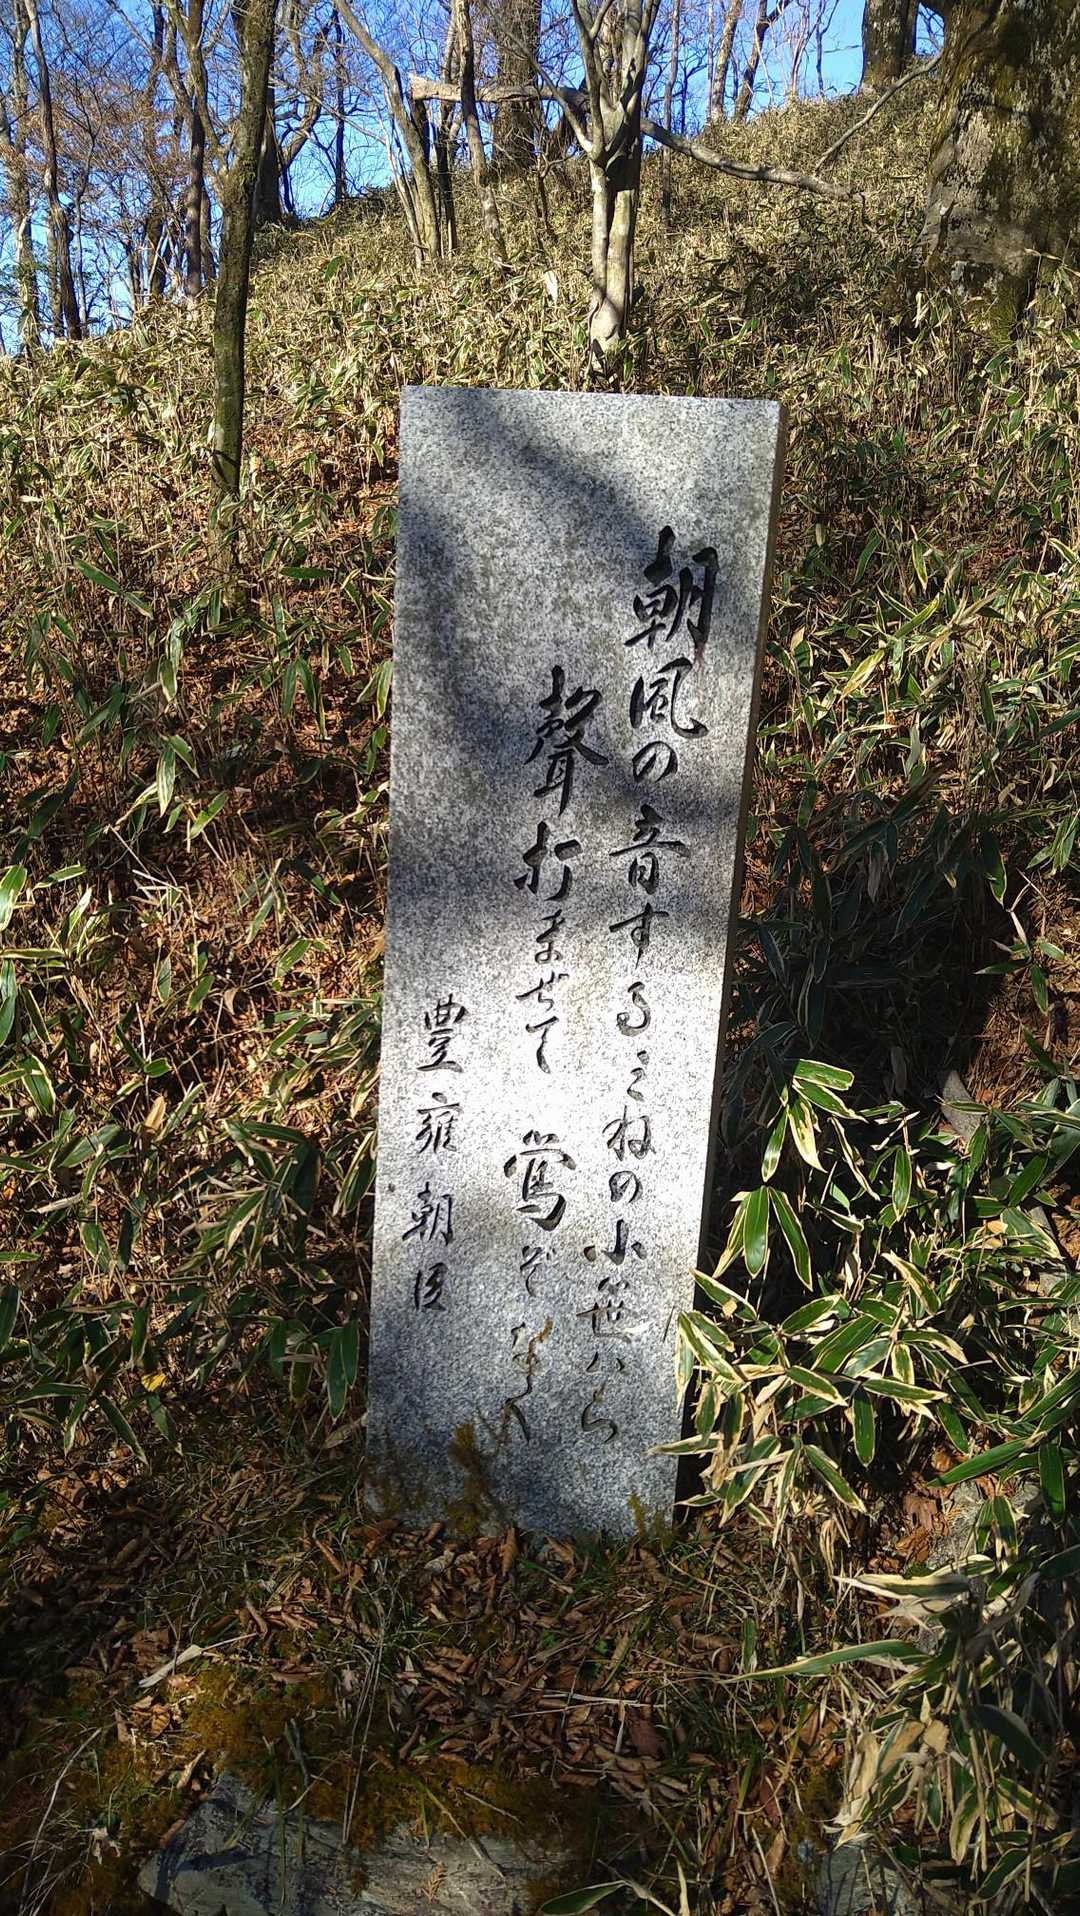 朝風の音するみねの小笹はら
聲打まぜて鶯ぞなく
豊雍朝臣